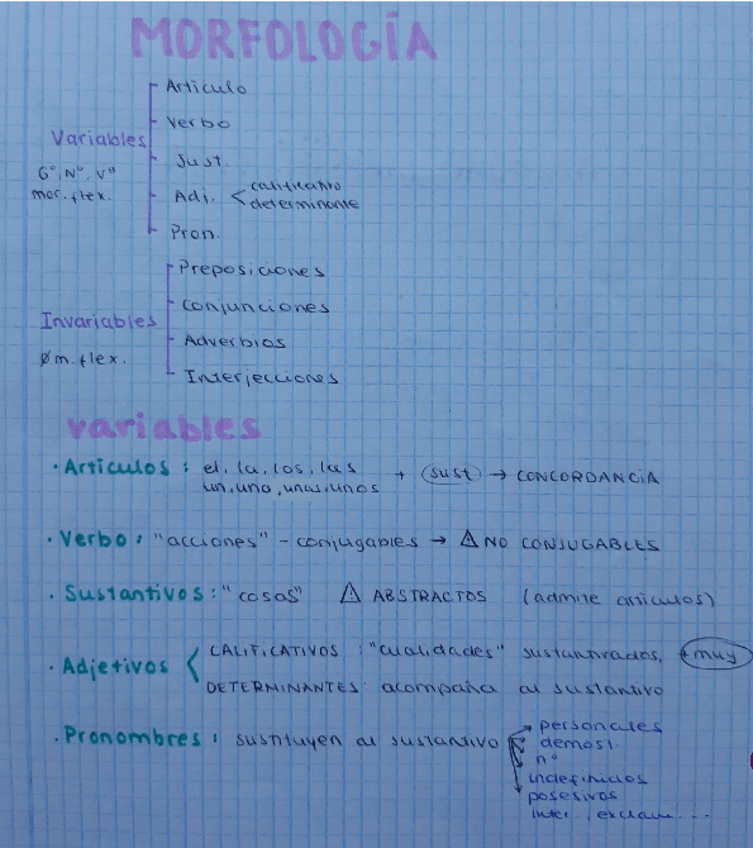 MORFOLOGÍA
Articulo
Verbo
Variables
Sust.
G°, N°, V°
mor. flex.
Adj. < calificativo
determinante
Pron.
Preposiciones
Conjunciones
Invariables
Adverbios
Ø m. flex.
Interjecciones
variables
· Articulos : el, la, los, las + sust → CONCORDANCIA
un, una, unas, unos
· Verbo : "acciones" - conjugables → ⚠ NO CONJUGABLES
· Sustantivos : "cosas" ⚠ ABSTRACTOS (admite articulos)
CALIFICATIVOS : "cualidades" sustantivados, + muy
· Adjetivos <
DETERMINANTES: acompaña al sustantivo
personales
· Pronombres : sustituyen al sustantivo
demost.
n°
indefinidos
posesivos
inter., exclam....